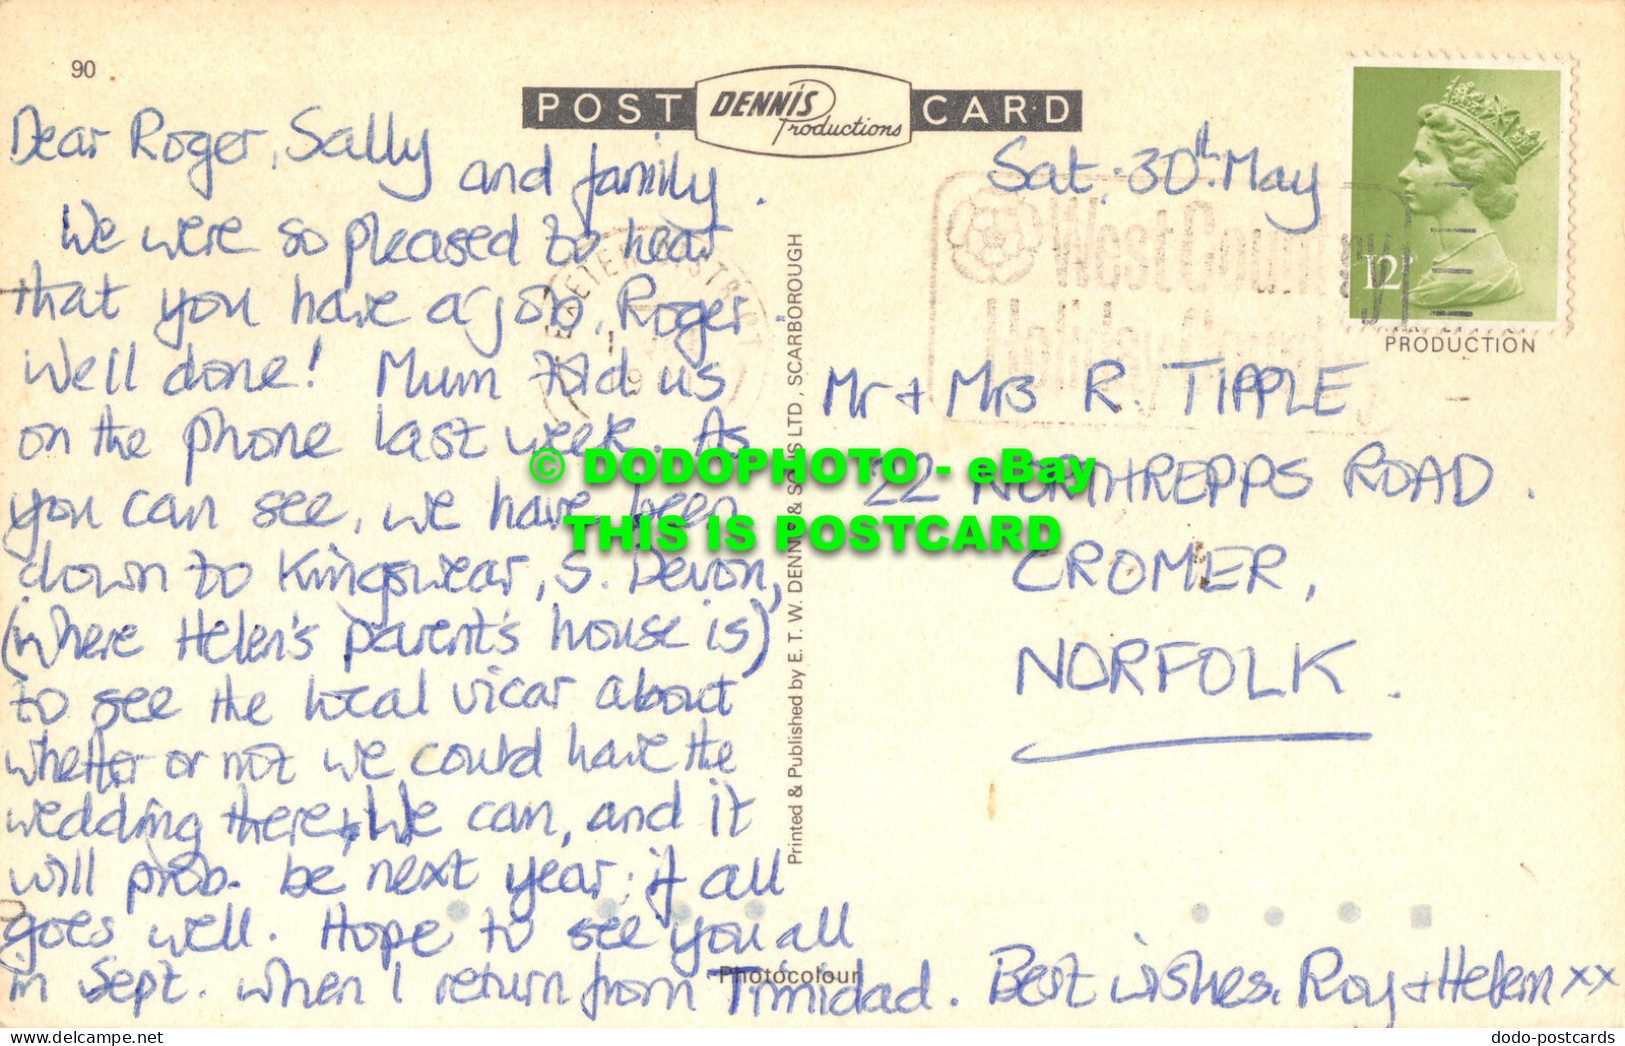 90
POST DENNIS Productions CARD
Dear Roger, Sally and family.
We were so pleased to hear
that you have a job, Roger.
Well done! Mum told us
on the phone last week. As
you can see, we have been
down to Kingswear, S. Devon,
(where Helen's parent's house is)
to see the local vicar about
whether or not we could have the
wedding there. We can, and it
will prob. be next year, if all
goes well. Hope to see you all
in Sept. when I return from Trinidad.
Best wishes, Roy + Helen xx
Sat. 30th. May
Mr + Mrs R. TIPPLE
22 NORTHREPPS ROAD.
CROMER,
NORFOLK.
12P
West Country
PRODUCTION
EXETER DISTRICT
Printed & Published by E. T. W. DENNIS & SONS LTD, SCARBOROUGH
Photocolour
© DODOPHOTO - eBay
THIS IS POSTCARD
delcampe.net
dodo-postcards